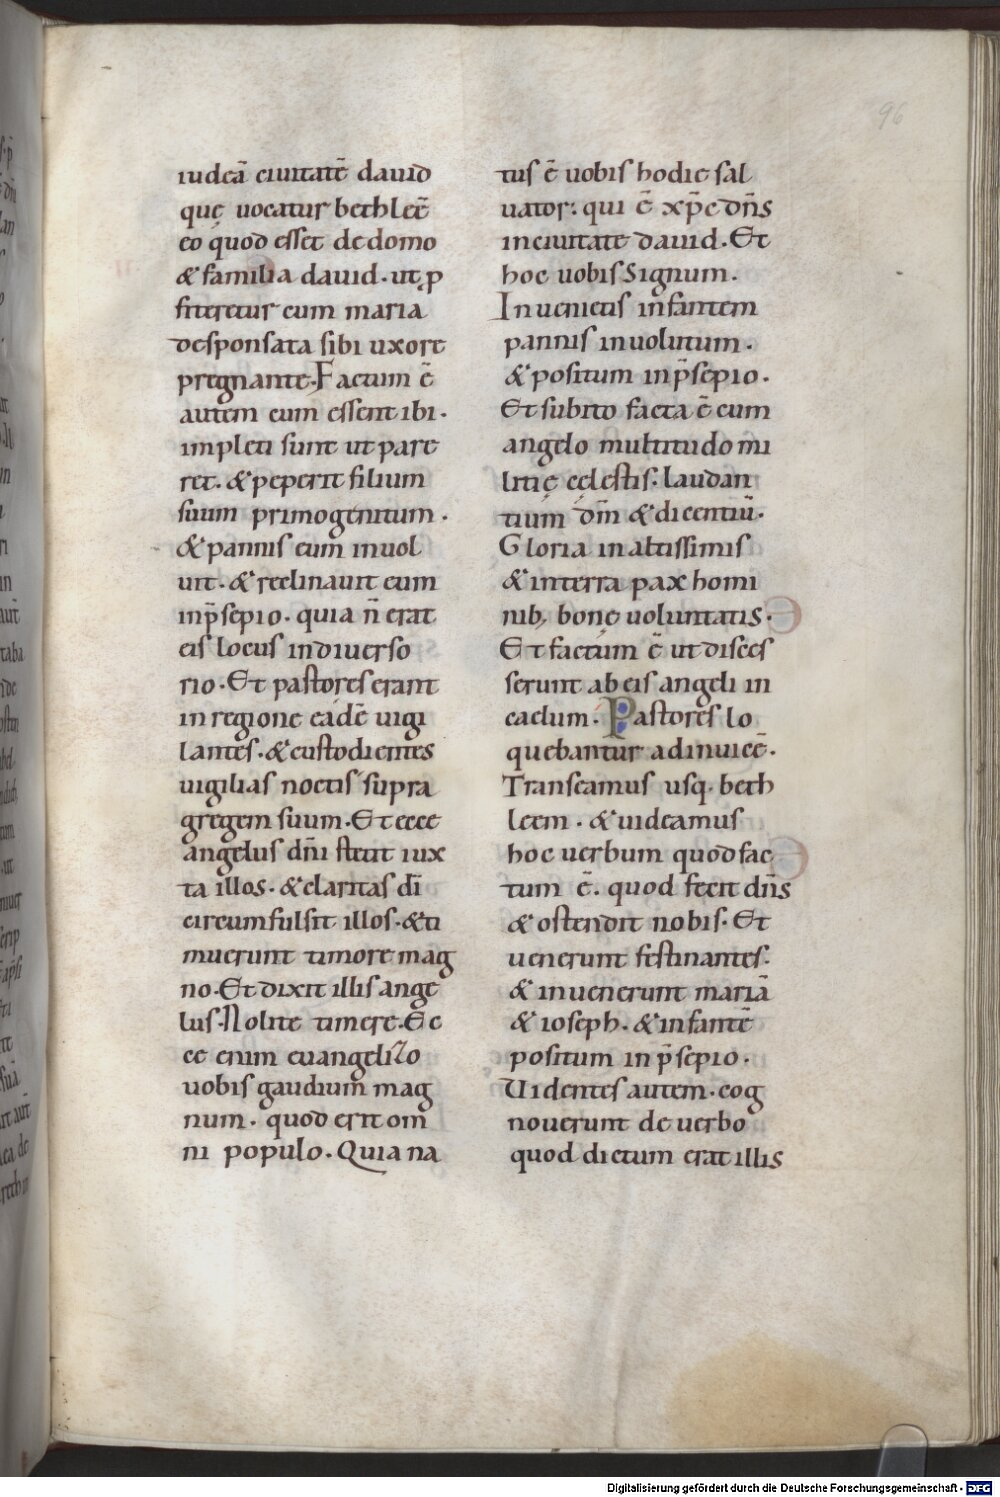 96
iudeā ciuitatē dauid
quę uocatur bethleē
eo quod esset de domo
& familia dauid. ut p
fiteretur cum maria
desponsata sibi uxore
pregnante. Factum ē
autem cum essent ibi.
impleti sunt ut pare
ret. & peperit filium
suum primogenitum.
& pannis eum inuol
uit. & reclinauit eum
in p̄sepio. quia n̄ erat
eis locus in diuerso
rio. Et pastores erant
in regione eadē uigi
lantes. & custodientes
uigilias noctis supra
gregem suum. Et ecce
angelus dn̄i stetit iux
ta illos. & claritas dī
circumfulsit illos. & ti
muerunt timore mag
no. Et dixit illis ange
lus. Nolite timere. Ec
ce enim euangelizo
uobis gaudium mag
num. quod erit om̄
ni populo. Quia na
tus ē uobis hodie sal
uator: qui ē xp̄c dn̄s
in ciuitate dauid. Et
hoc uobis Signum.
Inuenietis infantem
pannis inuolutum.
& positum in p̄sepio.
Et subito facta ē cum
angelo multitudo mi
litię cęlestis: laudan
tium dm̄ & dicentiū.
Gloria in altissimis
& in terra pax homi
nib; bonę uoluntatis.
Et factum ē ut disces
serunt ab eis angeli in
caelum. Pastores lo
quebantur ad inuicē.
Transeamus usq. beth
leem. & uideamus
hoc uerbum quod fac
tum ē. quod fecit dn̄s
& ostendit nobis. Et
uenerunt festinantes.
& inuenerunt mariā
& ioseph. & infantē
positum in p̄sepio.
Uidentes autem. cog
nouerunt de uerbo
quod dictum erat illis
Digitalisierung gefördert durch die Deutsche Forschungsgemeinschaft - DFG